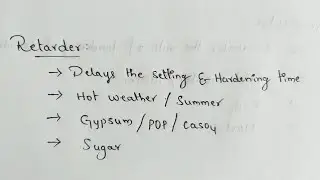 Retarder:
→ Delays the setting & Hardening time
→ Hot weather / Summer
→ Gypsum / POP / CaSO4
→ Sugar